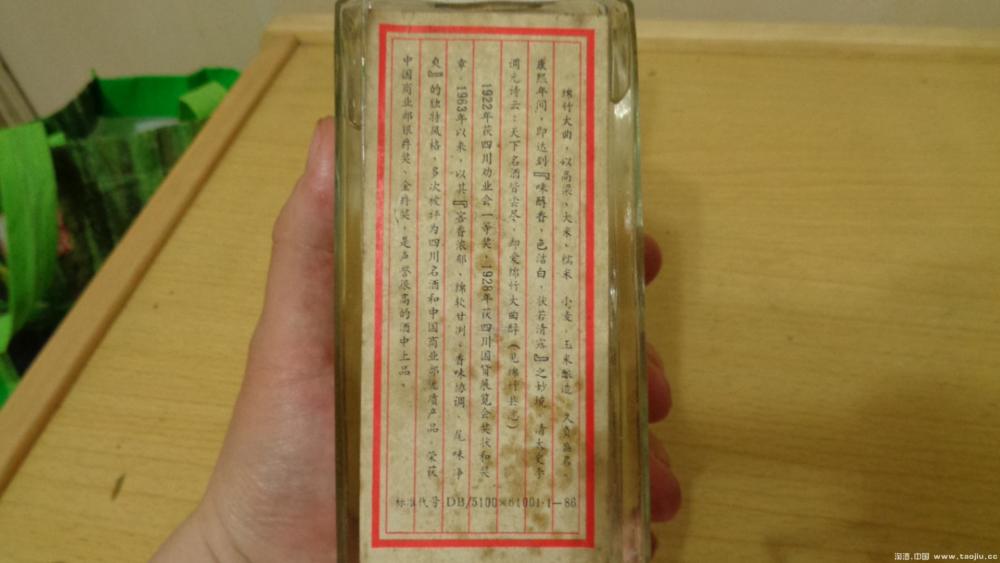 绵竹大曲，以高粱、大米、糯米、小麦、玉米酿造，久负盛名，
康熙年间，即达到『味醇香，色洁白，状若清露』之妙境，清太史李
调元诗云：天下名酒皆尝尽，却爱绵竹大曲醇（见绵竹县志）
1922年获四川劝业会一等奖，1928年获四川国货展览会奖状和奖
章，1963年以来，以其『窖香浓郁、绵软甘洌、香味协调、尾味净
爽』的独特风格，多次被评为四川名酒和中国商业部优质产品，荣获
中国商业部银爵奖、金爵奖，是声誉很高的酒中上品。
标准代号 DB/5100 61001·1—86
淘酒.中国 www.taojiu.cc